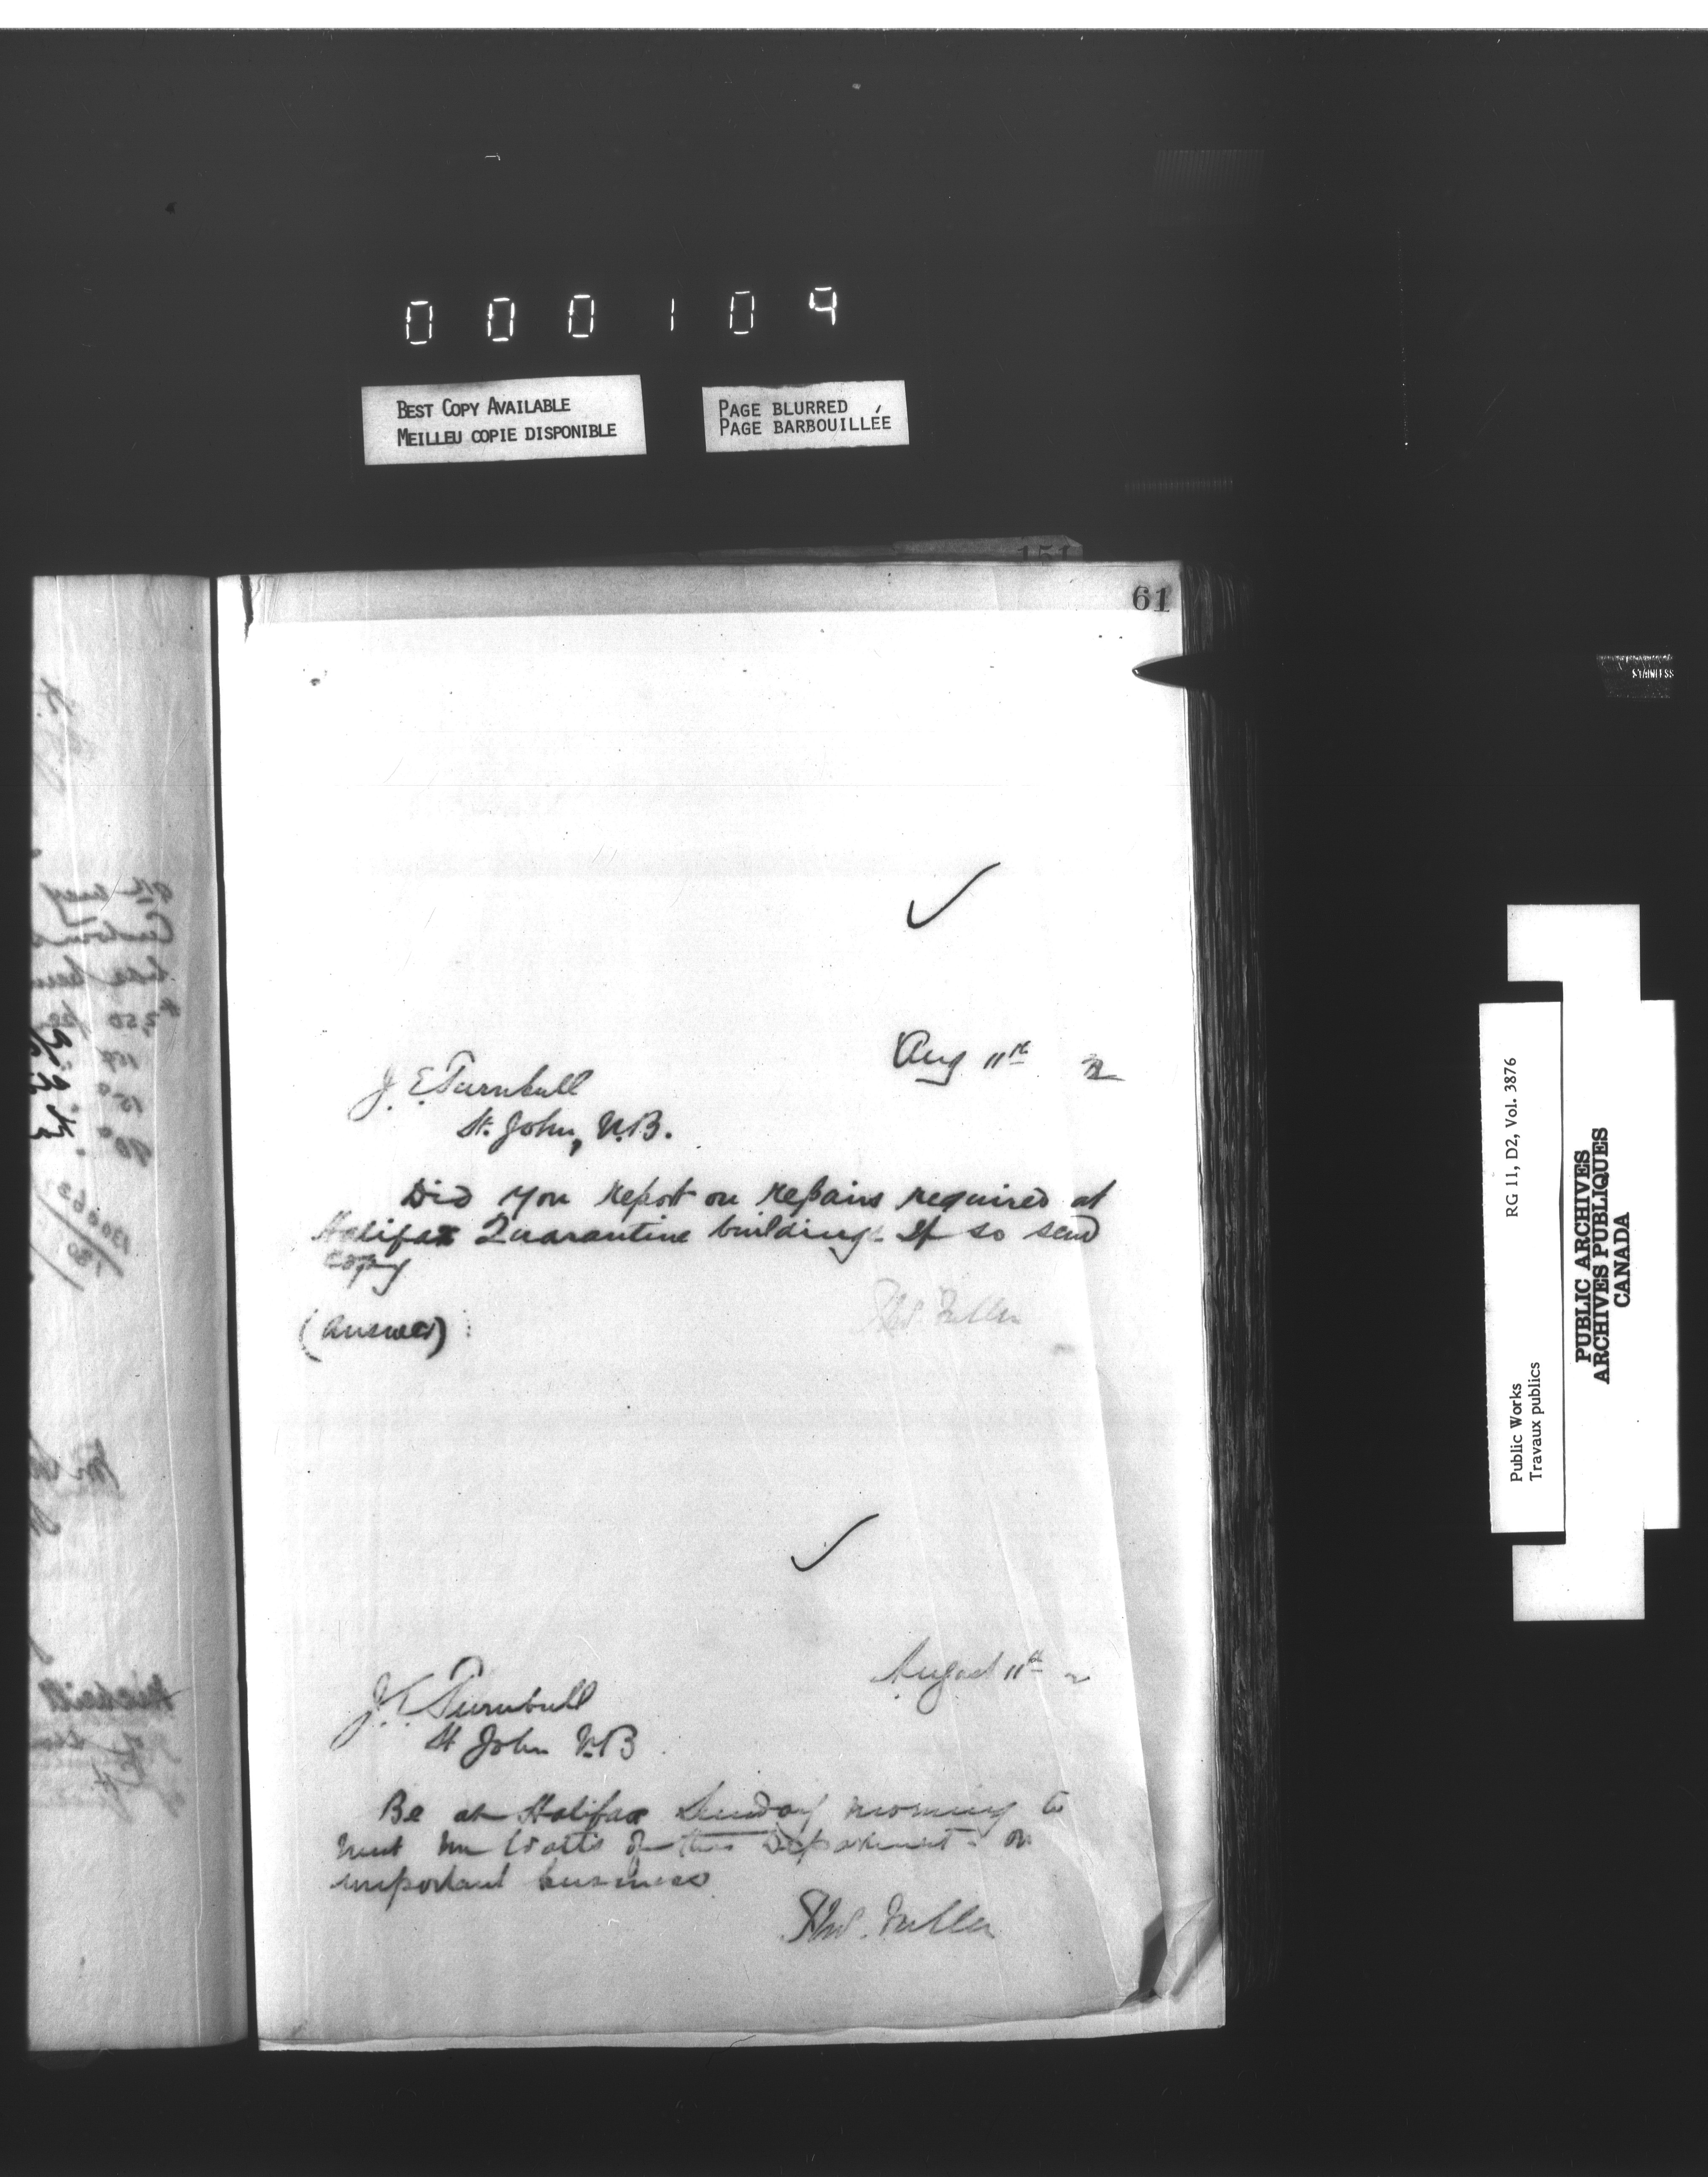 000109
BEST COPY AVAILABLE
MEILLEU COPIE DISPONIBLE
PAGE BLURRED
PAGE BARBOUILLÉE
151
61
Aug 11th
J. E. Turnbull
St. John, N.B.
Did you report on repairs required at
Halifax Quarantine buildings If so send
copy
(answer)
Thos. Fuller
August 11th
J. E. Turnbull
St John N.B
Be at Halifax Sunday morning to
meet Mr Watts of this Department on
important business
Thos. Fuller
RG 11, D2, Vol. 3876
Public Works
Travaux publics
PUBLIC ARCHIVES
ARCHIVES PUBLIQUES
CANADA
STAINLESS